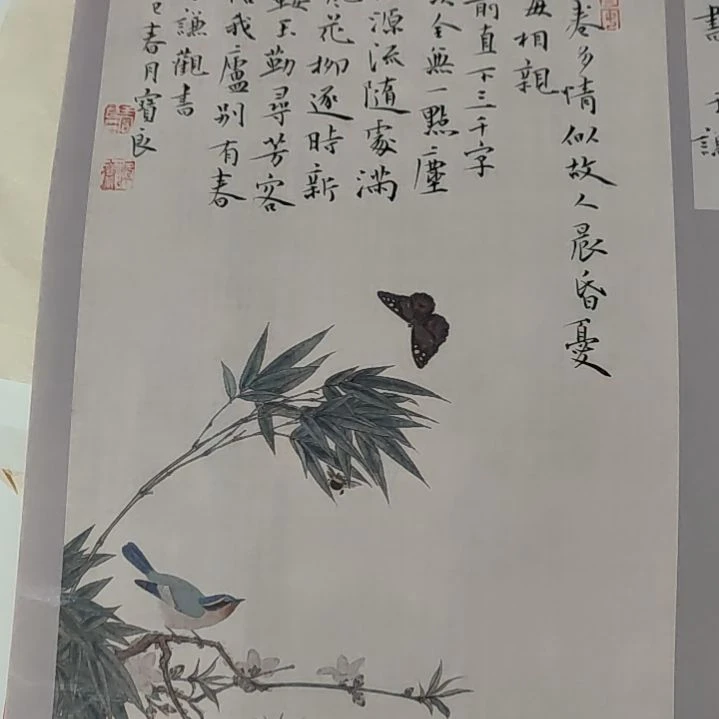 卷多情似故人晨昏憂
每相親
前直下三千字
全無一點塵
源流隨處滿
花柳逐時新
玉勒尋芳客
我廬別有春
謙觀書
春月寶良